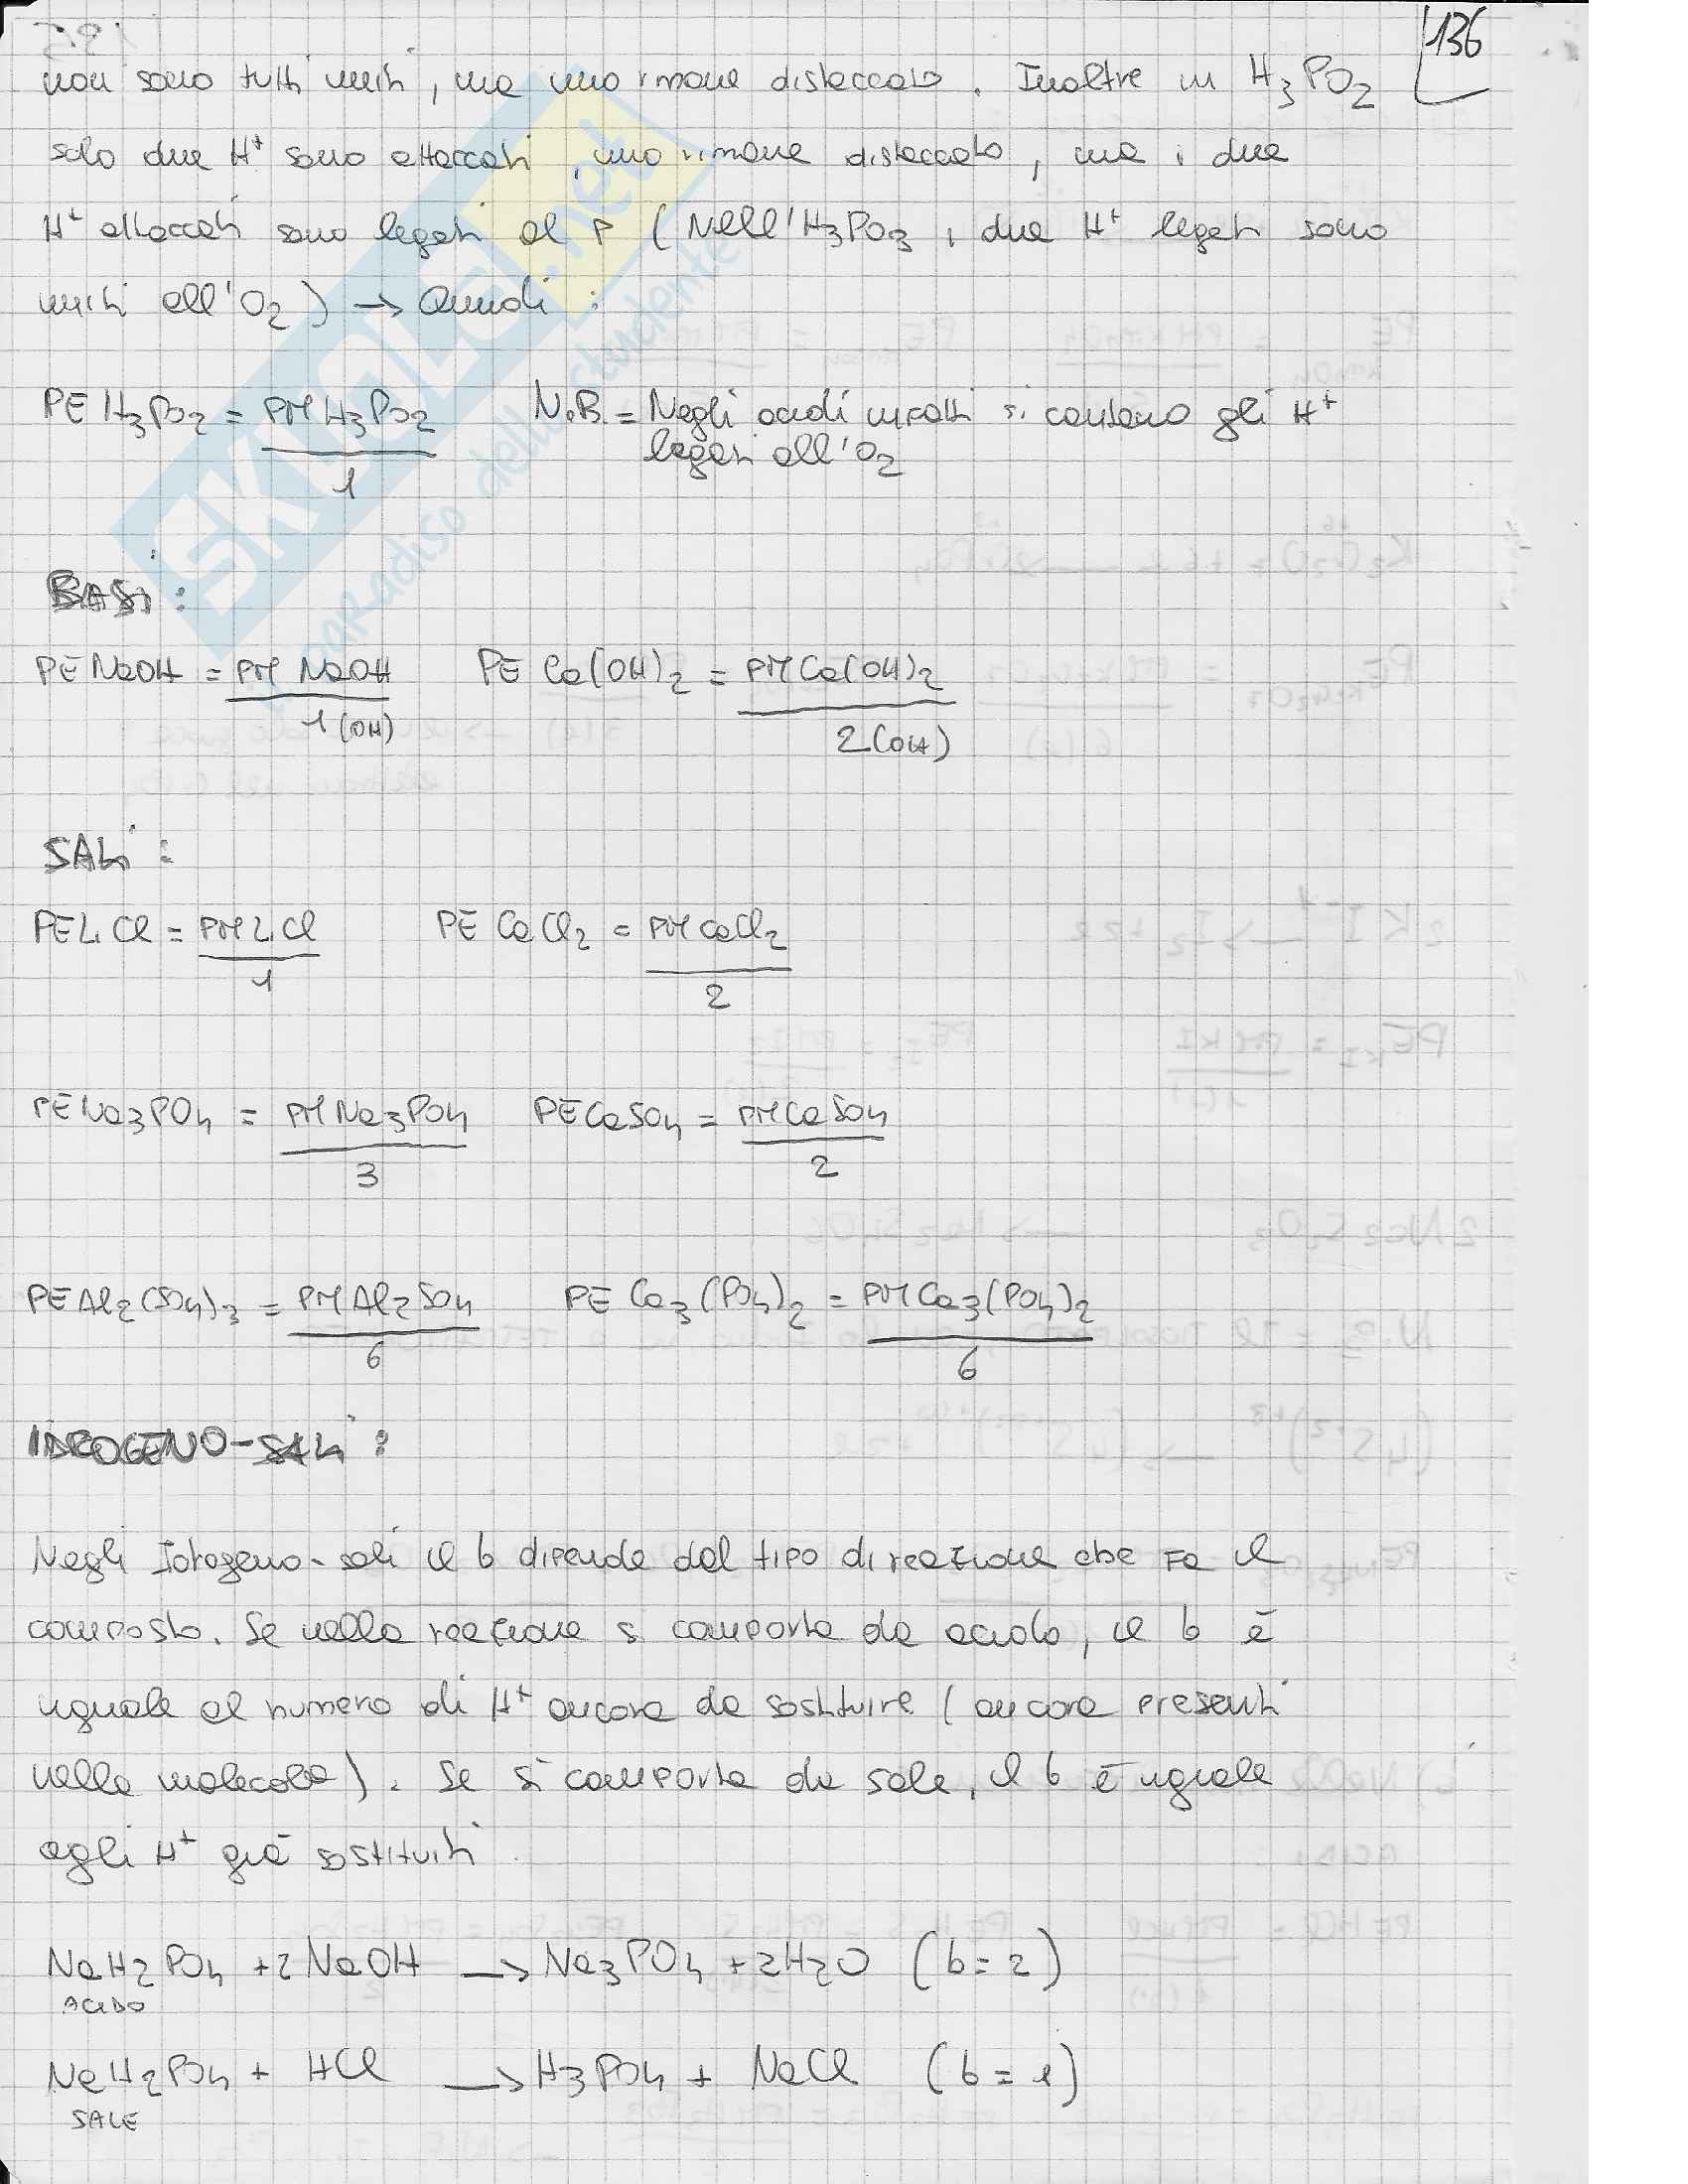 136
non sono tutti uniti, ma uno rimane distaccato. Inoltre in H3PO2
solo due H+ sono attaccati, uno rimane distaccato, ma i due
H+ attaccati sono legati al P (Nell'H3PO3, due H+ legati sono
uniti all'O2) → Quindi:
PE H3PO2 = PM H3PO2 / 1 N.B. = Negli acidi infatti si contano gli H+
legati all'O2
BASI:
PE NaOH = PM NaOH / 1 (OH) PE Ca(OH)2 = PM Ca(OH)2 / 2 (OH)
SALI:
PE LiCl = PM LiCl / 1 PE CaCl2 = PM CaCl2 / 2
PE Na3PO4 = PM Na3PO4 / 3 PE CaSO4 = PM CaSO4 / 2
PE Al2(SO4)3 = PM Al2SO4 / 6 PE Ca3(PO4)2 = PM Ca3(PO4)2 / 6
IDROGENO-SALI:
Negli Idrogeno-sali il b dipende dal tipo di reazione che fa il
composto. Se nella reazione si comporta da acido, il b è
uguale al numero di H+ ancora da sostituire (ancora presenti
nella molecola). Se si comporta da sale, il b è uguale
agli H+ già sostituiti
NaH2PO4 + 2 NaOH → Na3PO4 + 2H2O (b = 2)
ACIDO
NaH2PO4 + HCl → H3PO4 + NaCl (b = 1)
SALE
SKUOLA.net
il paradiso dello studente